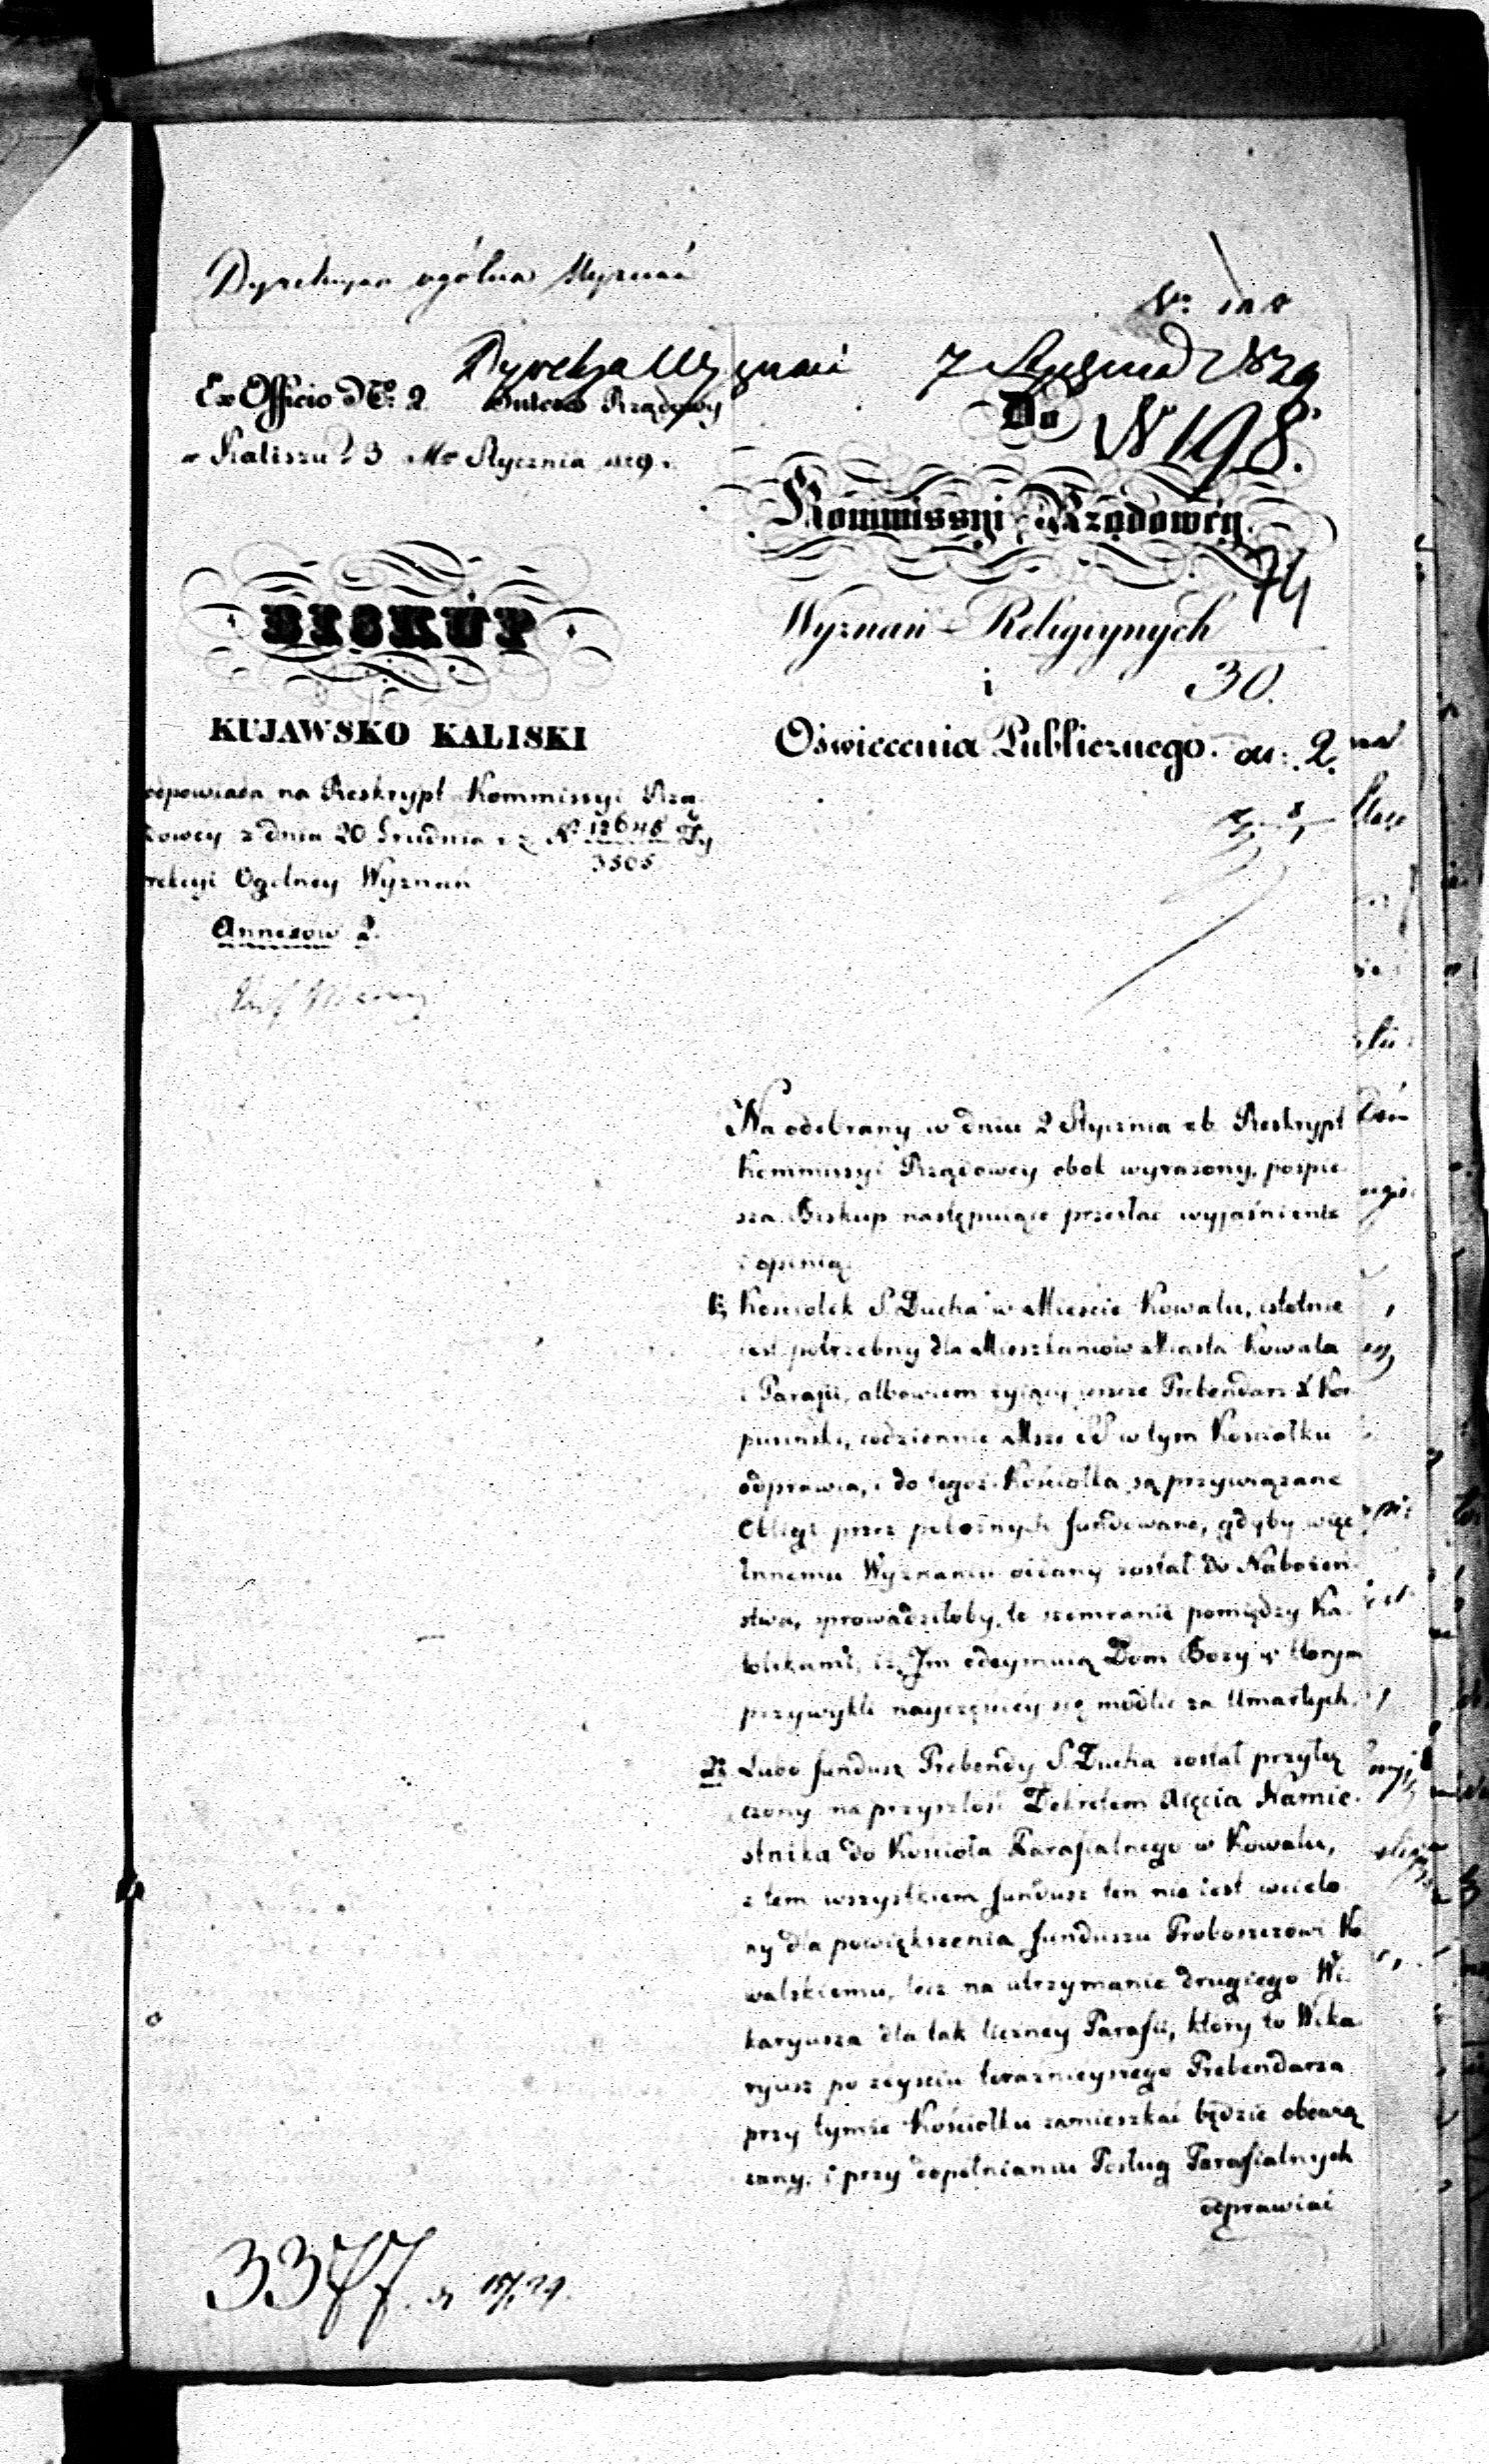 Dyrekcya ogólna Wyznań
Dyrekcya Wyznań 7 Stycznia 1829
Ex Officio No: 2. Interes Rządowy
w Kaliszu d 3 Mca Stycznia 829.
Do
N 198.
Kommissyi Rządowéy
74
Wyznań Religiynych
30.
i
Oświecenia Publicznego. 2.
BISKUP
KUJAWSKO KALISKI
odpowiada na Reskrypt Kommissyi Rzą
dowey z dnia 20 Grudnia r z No 12645 Dy
3505
rekcyi Ogolney Wyznań
Annexow 2.
Na odebrany w dniu 2 Stycznia r b Reskrypt
Kommissyi Rządowey obok wyrażony, pospie
sza Biskup następuiące przesłać wyjaśnienie
i opinią.
1; Kościołek S. Ducha w Mieście Kowalu, istotnie
iest potrzebny dla Mieszkańców Miasta Kowala
i Parafii, albowiem żyiący ieszcze Prebendarz X
codziennie Msze S w tym Kościołku
odprawia, i do tegoż Kościołka są przywiązane
Obligi przez pobożnych fundowane, gdyby więc
Innemu Wyznaniu oddany został do Nabożeń
stwa, sprowadziłoby, to szemranie pomiędzy Ka
tolikami, iż Im odeymuią Dom Boży w ktorym
przywykli nayczęściey się modlić za Umarłych.
2; Lubo fundusz Prebendy S. Ducha został przyłą
czony na przyszłość Dekretem Xięcia Namie
stnika do Kościoła Parafialnego w Kowalu,
z tem wszystkiem fundusz ten nie iest wcielo
ny dla powiększenia funduszu Proboszczowi Ko
walskiemu, lecz na utrzymanie drugiego Wi
karyusza dla tak liczney Parafii, ktory to Wika
ryusz po zeyściu teraźnieyszego Prebendarza
przy tymże Kościołku zamieszkać będzie obowią
zany, i przy dopełnianiu Posług Parafialnych
odprawiać
3377. 29.